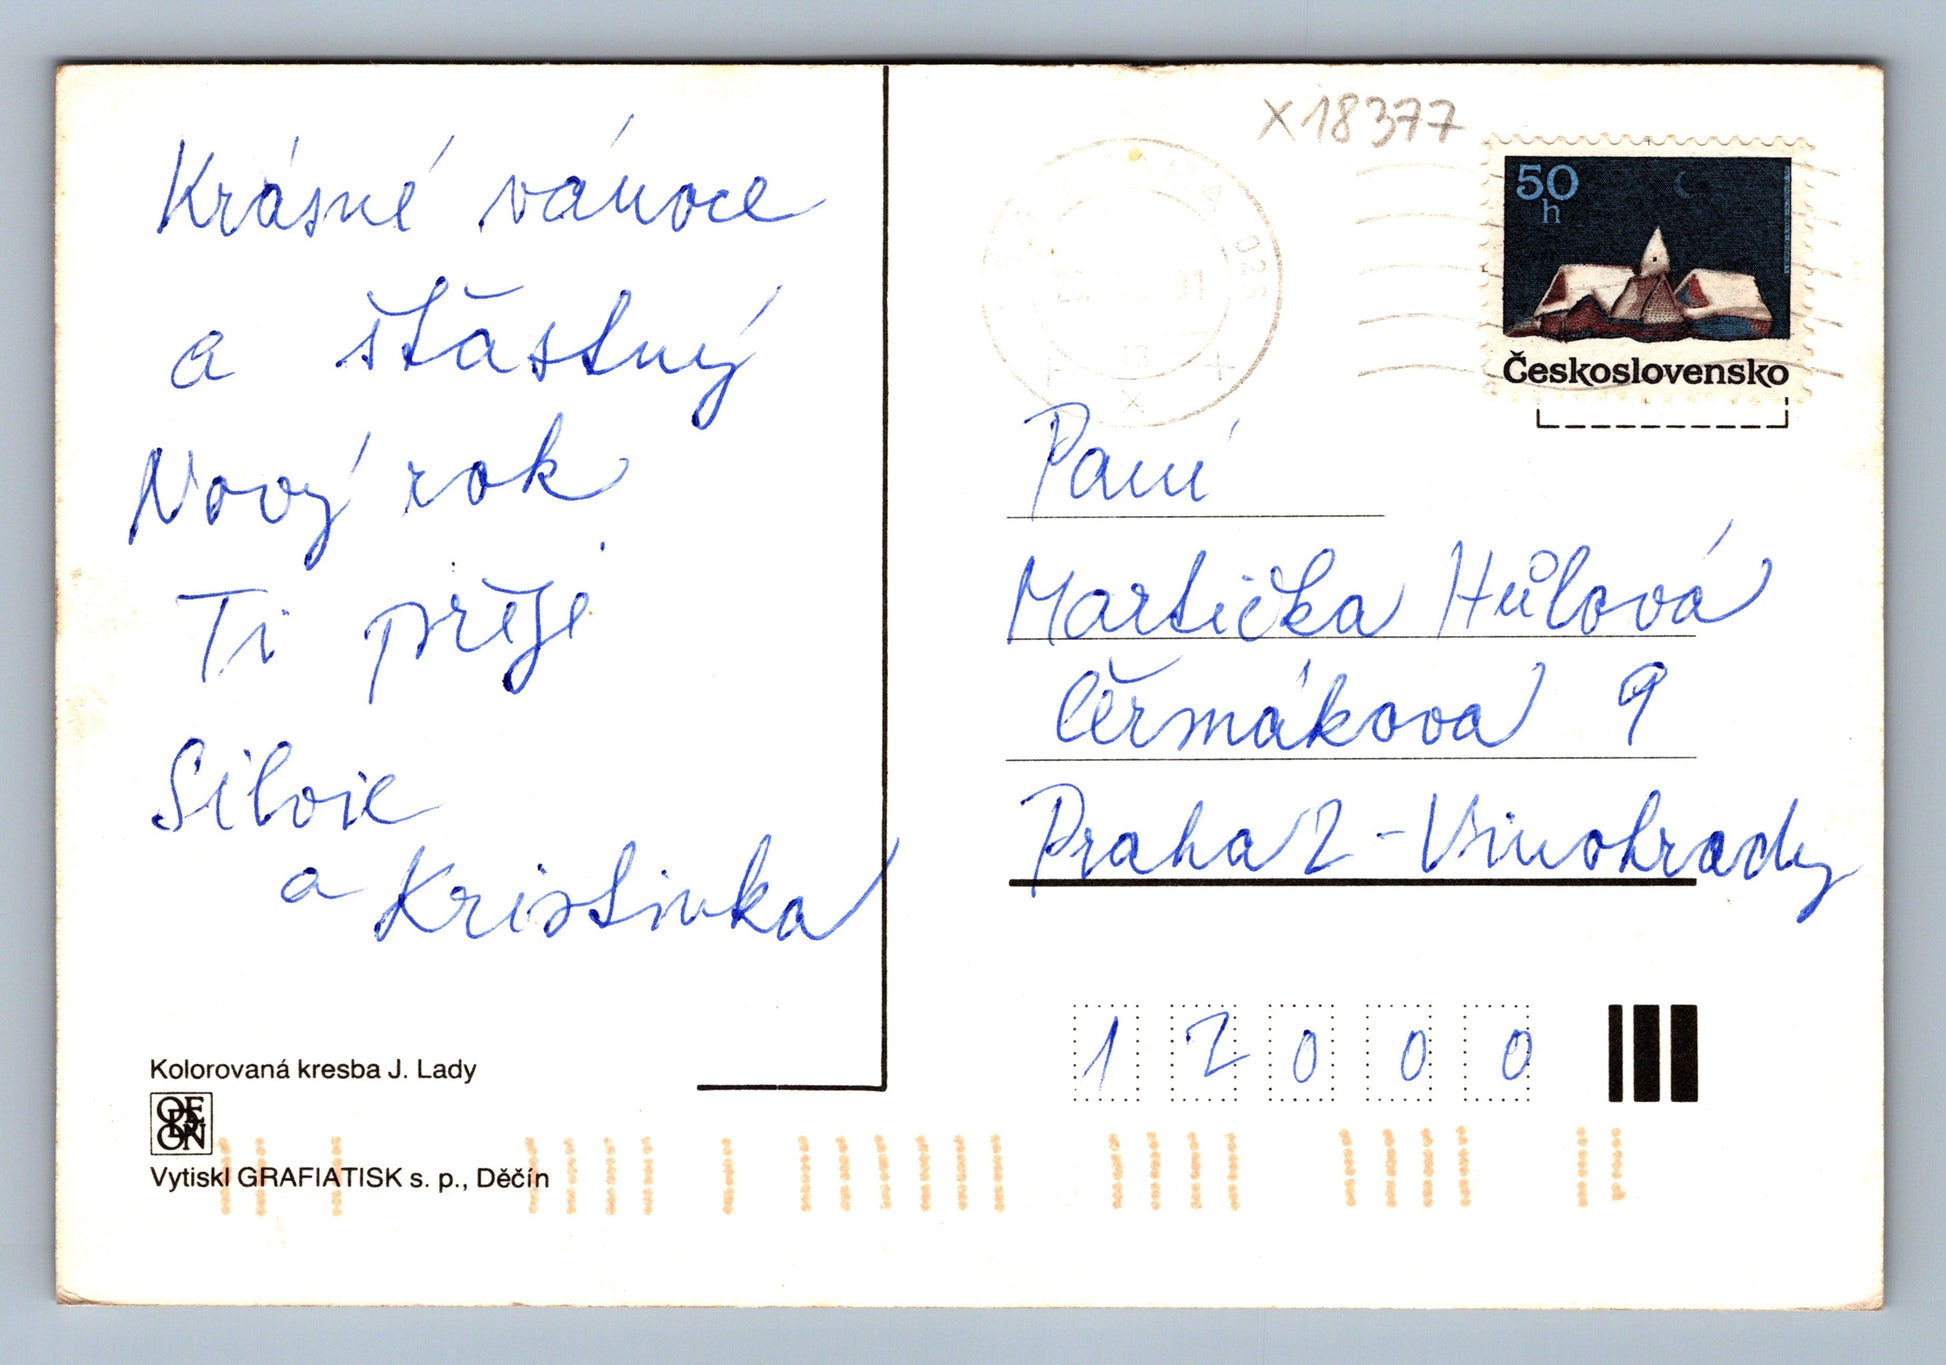 Krásné vánoce
a šťastný
Nový rok
Ti přeje
Silvie
a Kristinka
Kolorovaná kresba J. Lady
ODEON
Vytiskl GRAFIATISK s. p., Děčín
X18377
PRAHA 025
91
50
h
Československo
Paní
Martička Hůlová
Čermákova 9
Praha 2 - Vinohrady
12000